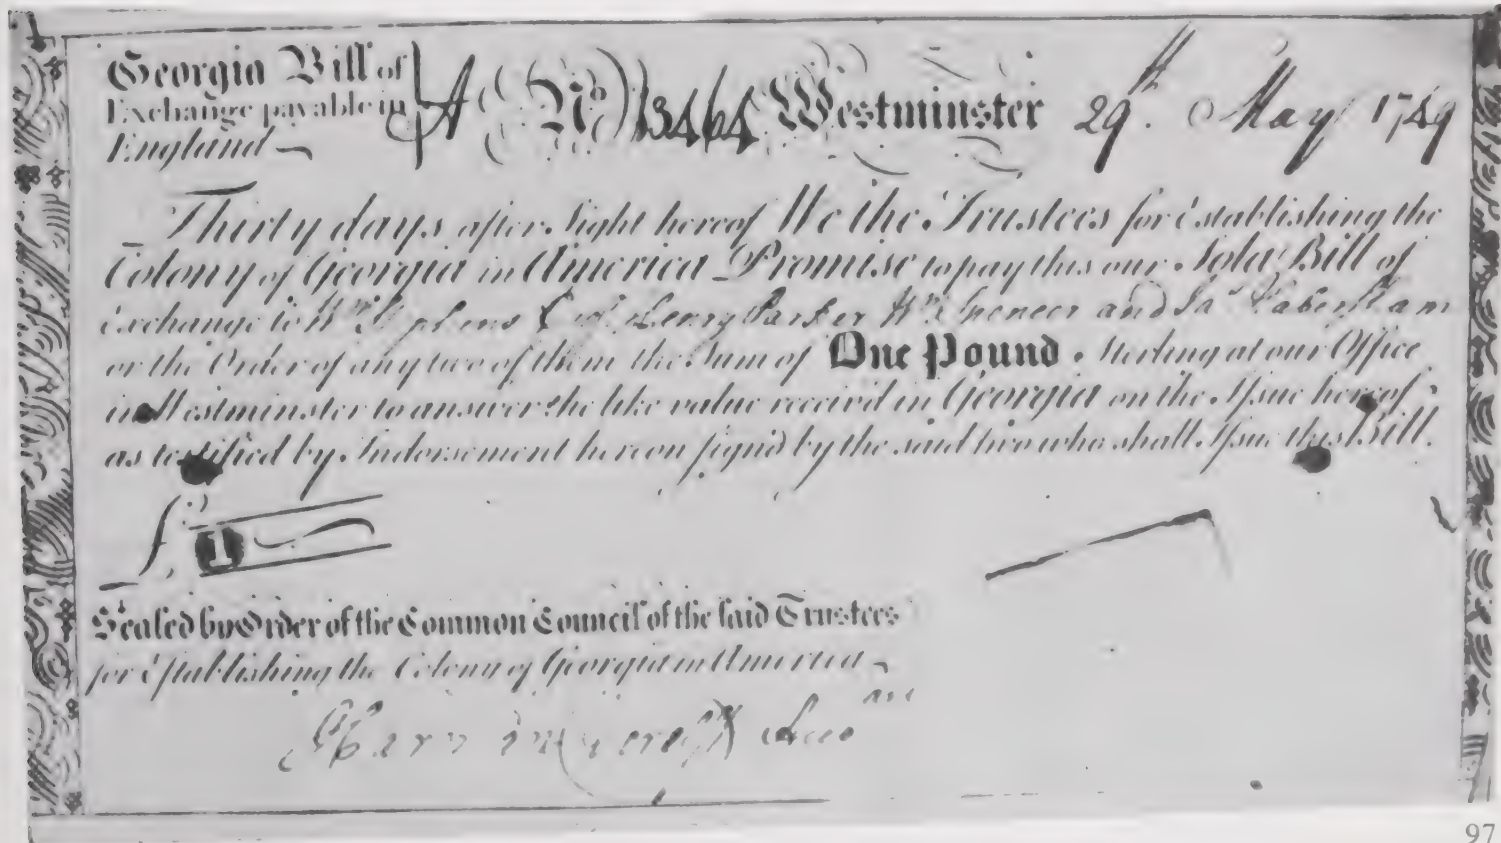 Georgia Bill of
Exchange payable in
England
A No 13464 Westminster 29th. May 1749
Thirty days after Sight hereof We the Trustees for Establishing the
Colony of Georgia in America Promise to pay this our Sola Bill of
Exchange to Wm Stephens Esqr. Henry Parker Wm Spencer and Ja. Habersham
or the Order of any two of them the Sum of One Pound. Sterling at our Office
in Westminster to answer the like value receiv'd in Georgia on the Issue hereof
as testified by Indorsement hereon sign'd by the said two who shall Issue this Bill.
£ 1
Sealed by Order of the Common Council of the said Trustees
for Establishing the Colony of Georgia in America
97